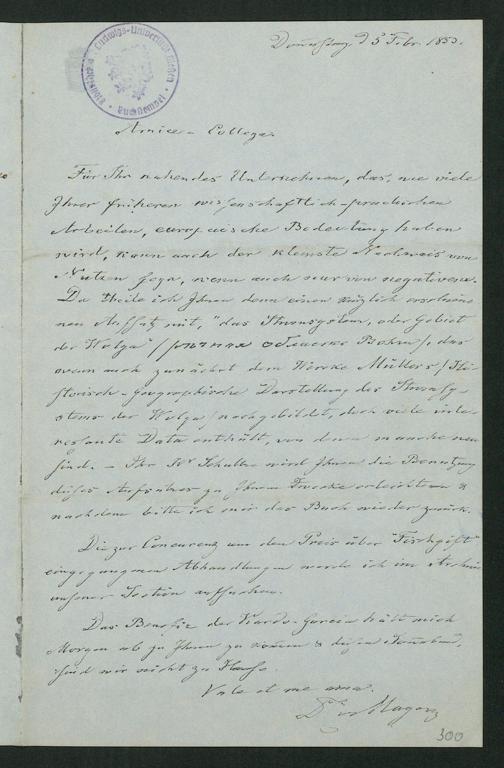 Bibliothek · Ludwigs-Universität Gießen ·
Donnerstag d 5 Febr. 1853.
Amice Collega
Für Ihr nahendes Unternehmen, das, wie viele
Ihrer früheren wissenschaftlich-practischen
Arbeiten, europäische Bedeutung haben
wird, kann auch der kleinste Nachweis von
Nutzen sein, wenn auch nur von negativem.
Da theile ich Ihnen denn einen kürzlich erschiene
nen Aufsatz mit, "das Stromsystem, oder Gebiet
der Wolga" / das
wenn auch zunächst dem Wercke Müllers / Hi
storisch-geographische Darstellung des Stromsy
stems der Wolga / nachgebildet, doch viele inte
ressante Data enthält, von denen manche neu
sind. – Ihr Schultz wird Ihnen die Benutzung
dieses Aufsatzes zu Ihrem Zwecke erleichtern &
nachdem bitte ich mir das Buch wieder zurück.
Die zur Concurenz um den Preis über "Fischgift"
eingegangenen Abhandlungen werde ich im Archiv
unserer Section aufsuchen.
Das Benefiz der Viardo-Garcia hält mich
Morgen ab zu Ihnen zu kommen & diesen Sonnabend
sind wir nicht zu Hause.
Vale et me ama.
Dr
300